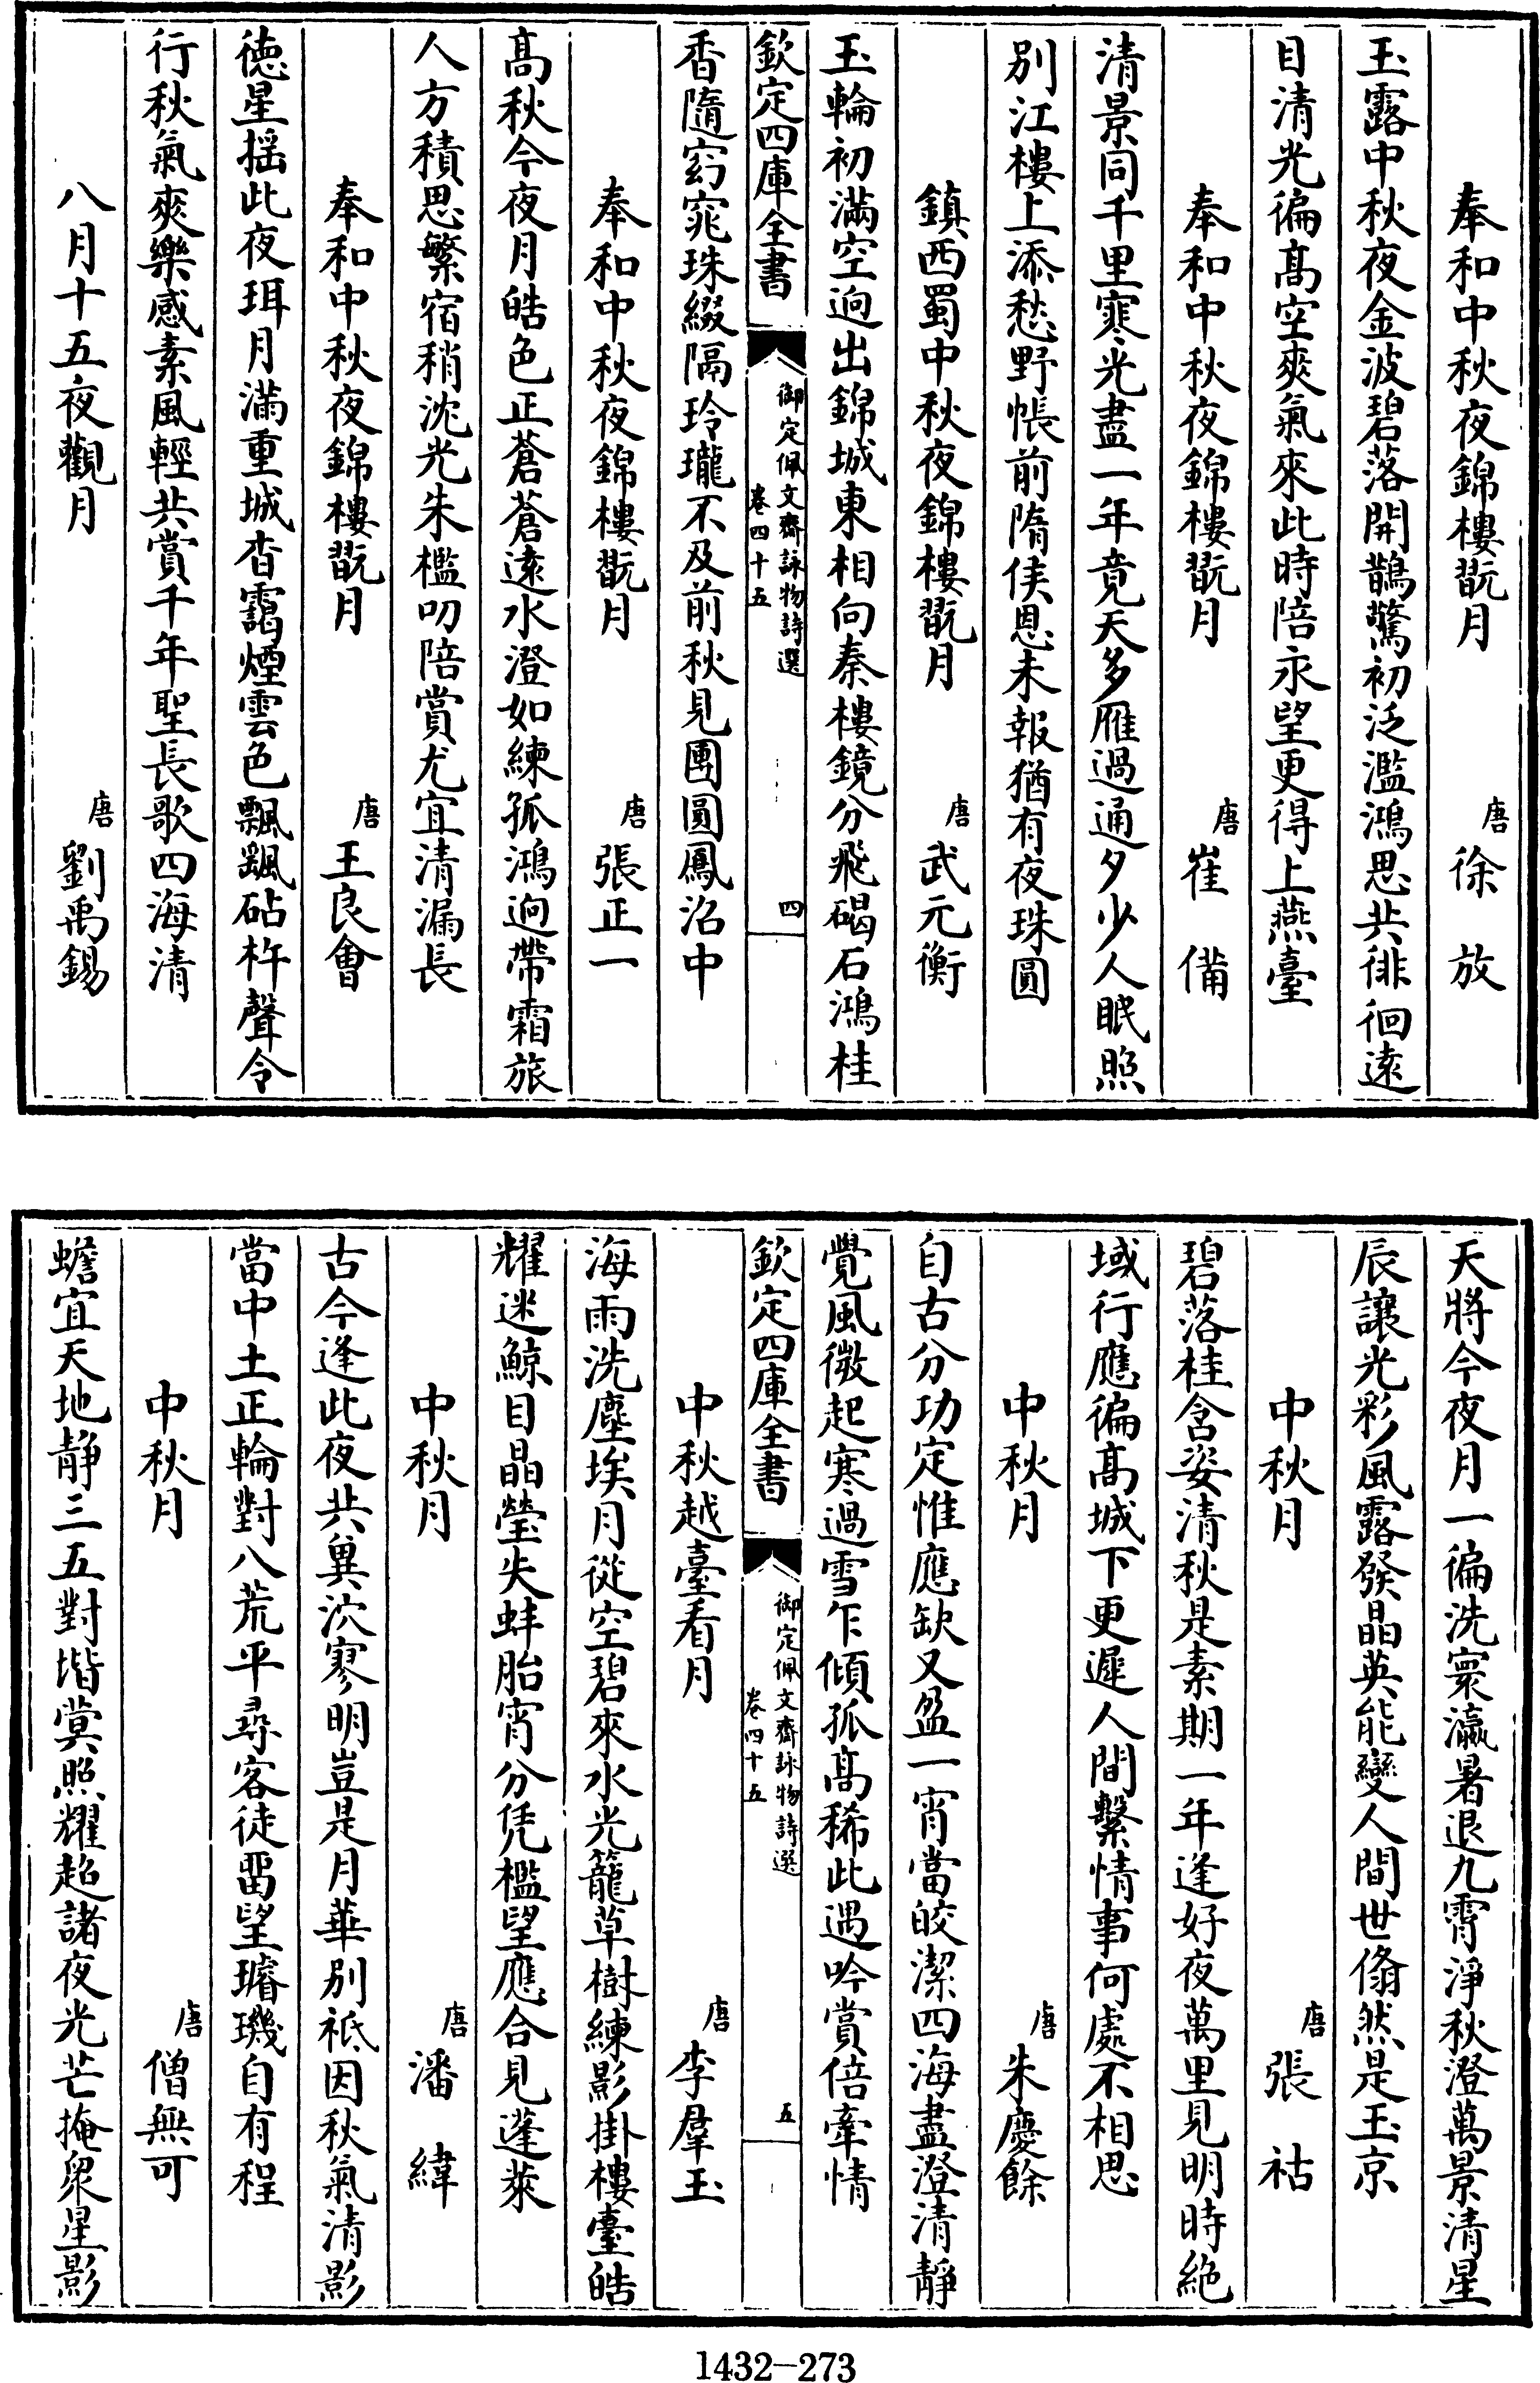 奉和中秋夜錦樓翫月　唐徐放
玉露中秋夜金波碧落開鵲驚初泛濫鴻思共徘徊遠
目清光徧髙空爽氣來此時陪永望更得上燕臺
奉和中秋夜錦樓翫月　唐崔備
清景同千里寒光盡一年竟天多雁過通夕少人眠照
别江樓上添愁野帳前隋侯恩未報猶有夜珠圓
鎮西蜀中秋夜錦樓翫月　唐武元衡
玉輪初滿空迥出錦城東相向秦樓鏡分飛碣石鴻桂
欽定四庫全書
御定佩文齋詠物詩選
卷四十五
四
香隨窈窕珠綴隔玲瓏不及前秋見團圓鳳沼中
奉和中秋夜錦樓翫月　唐張正一
髙秋今夜月皓色正蒼蒼遠水澄如練孤鴻迥帶霜旅
人方積思繁宿稍沈光朱檻叨陪賞尤宜清漏長
奉和中秋夜錦樓翫月　唐王良會
徳星揺此夜珥月滿重城杳靄煙雲色飄飖砧杵聲令
行秋氣爽樂感素風輕共賞千年聖長歌四海清
八月十五夜觀月　唐劉禹錫
天將今夜月一徧洗寰瀛暑退九霄淨秋澄萬景清星
辰讓光彩風露發晶英能變人間世翛然是玉京
中秋月　唐張祜
碧落桂含姿清秋是素期一年逢好夜萬里見明時絶
域行應徧髙城下更遲人間繫情事何處不相思
中秋月　唐朱慶餘
自古分功定惟應缺又盈一宵當皎潔四海盡澄清靜
覺風微起寒過雪乍傾孤髙稀此遇吟賞倍牽情
欽定四庫全書
御定佩文齋詠物詩選
卷四十五
五
中秋越臺看月　唐李羣玉
海雨洗塵埃月從空碧來水光籠草樹練影掛樓臺皓
耀迷鯨目晶瑩失蚌胎宵分凭檻望應合見蓬萊
中秋月　唐潘緯
古今逢此夜共冀泬寥明豈是月華别祇因秋氣清影
當中土正輪對八荒平尋客徒留望璿璣自有程
中秋月　唐僧無可
蟾宜天地静三五對堦蓂照耀超諸夜光芒掩衆星影
1432-273